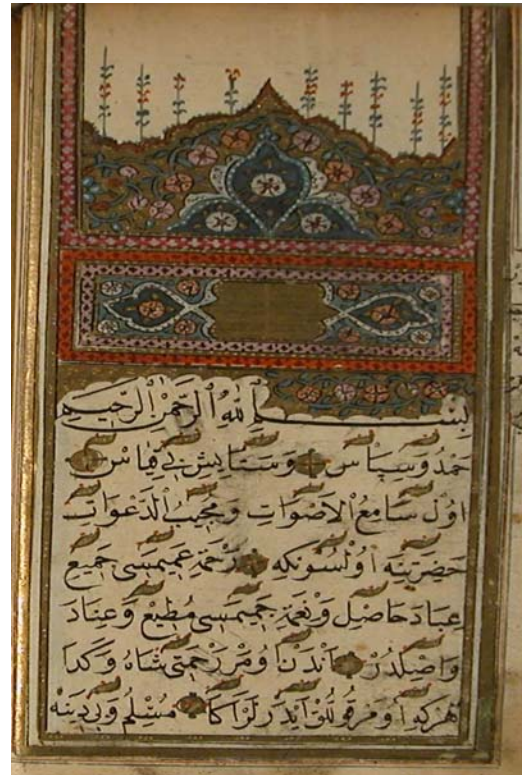 بِسْمِ ٱللَّهِ ٱلرَّحْمٰنِ ٱلرَّحِيمِ
حَمْدُ وَسِپَاسْ وَسَتَايِشِ بِى قِيَاسْ
اوُلْ سَامِعُ الْاَصْوَاتِ وَمُجِيبُ الدَّعْوَاتِ
حَضْرَتِينَه اوُلْسُونْكِه رَحْمَةِ عَمِيمَسِى جَمِيعِ
عِبَادَ حَاصِلْ وَنِعْمَةِ جَمِيمَسِى مُطِيعْ وَعِنَادَ
وَاصِلدُرْ آنْدَنْ اوُمَرْ رَحْمَتِى شَاهُ وَكَدَا
هَرْكِه اوُمَرْ قُوللُقْ اَيْدَرْلَرْ اَكَا مُسْلِمُ وَبِى دِينَه